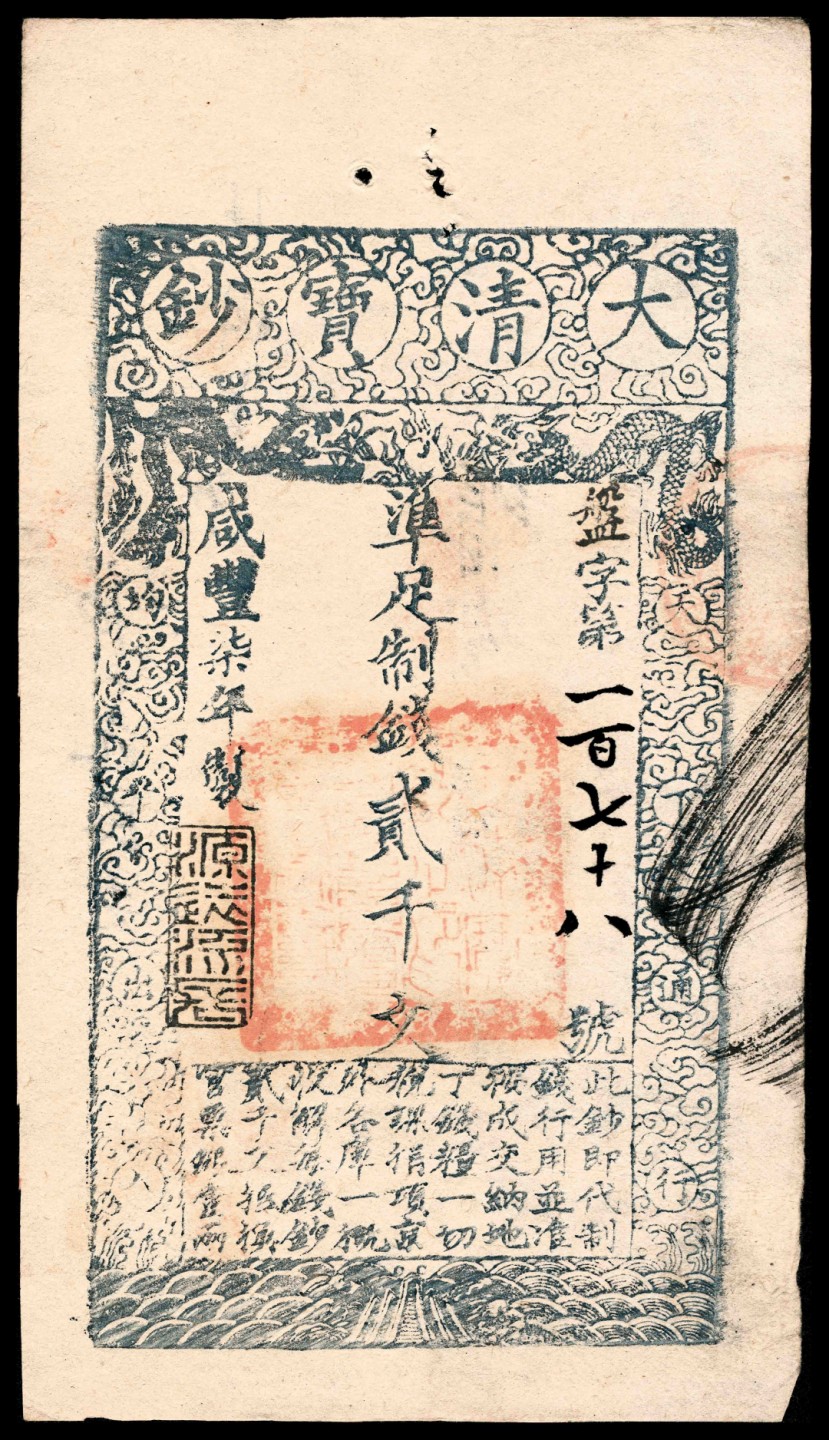 大清寶鈔
天下通行
盤字第一百七十八號
準足制錢貳千文
咸豐柒年製
均平出入
此鈔即代制
錢行用並准
按成交納地
丁錢糧一切
稅課捐項京
外各庫一概
收解每錢鈔
貳千文抵換
官票銀壹兩